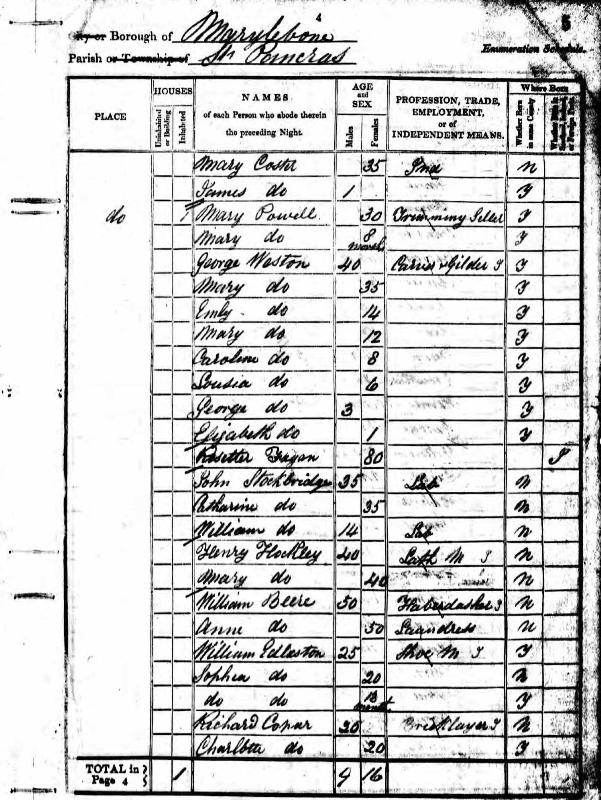 4
5
City or Borough of Marylebone
Parish or Township of St Pancras
Enumeration Schedule.
PLACE
HOUSES
Uninhabited or Building
Inhabited
NAMES
of each Person who abode therein
the preceding Night.
AGE and SEX
Males
Females
PROFESSION, TRADE,
EMPLOYMENT,
or of
INDEPENDENT MEANS.
Where Born
Whether Born in same County
Whether Born in Scotland, Ireland, or Foreign Parts.
Mary Coster 35 Ind N
James do 1 Y
do 1 Mary Powell 30 Trimming Seller Y
Mary do 8 months Y
George Weston 40 Carver & Gilder J Y
Mary do 35 Y
Emly do 14 Y
Mary do 12 Y
Caroline do 8 Y
Lousia do 6 Y
George do 3 Y
Elizabeth do 1 Y
Rosetter Fagan 80 I
John Stockbridge 35 Lab N
Catharine do 35 N
William do 14 Lab N
Henry Hockley 40 Lath M J N
Mary do 40 N
William Beere 50 Haberdasher J N
Anne do 50 Laundress N
William Edleston 25 Shoe M J Y
Sophia do 20 N
do do months Y
Richard Copar 20 Bricklayer J N
Charlotte do 20 Y
TOTAL in Page 4 1 9 16